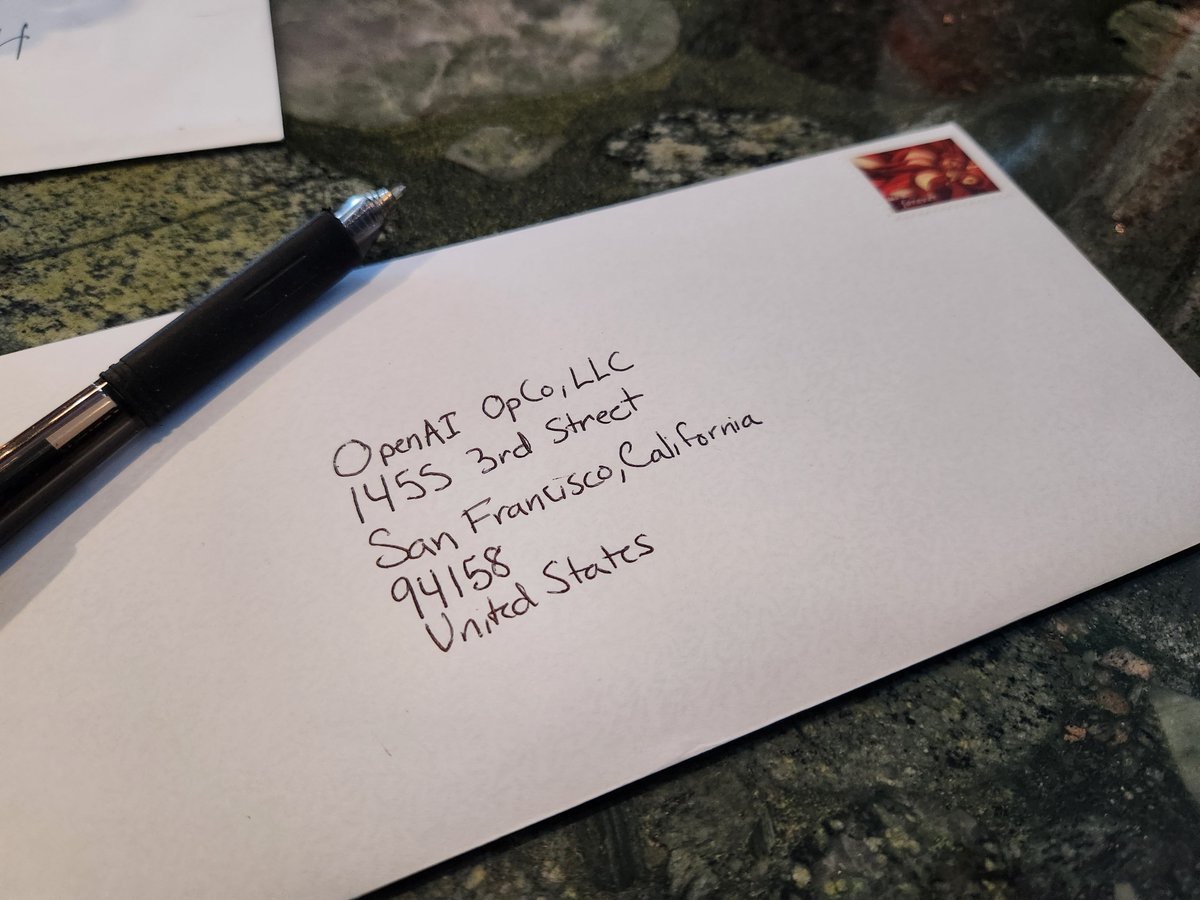 OpenAI OpCo, LLC
1455 3rd Street
San Francisco, California
94158
United States